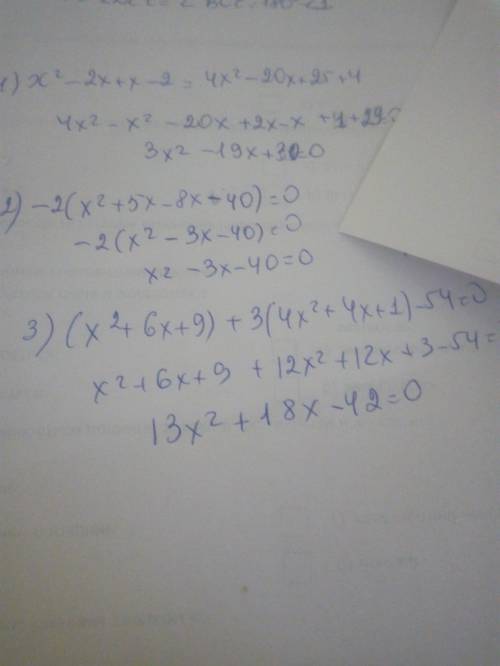 1) x² - 2x + x - 2 = 4x² - 20x + 25 + 4
4x² - x² - 20x + 2x - x + 29
3x² - 19x + 31 = 0
2) -2(x² + 5x - 8x - 40) = 0
-2(x² - 3x - 40) = 0
x² - 3x - 40 = 0
3) (x² + 6x + 9) + 3(4x² + 4x + 1) - 54 = 0
x² + 6x + 9 + 12x² + 12x + 3 - 54 =
13x² + 18x - 42 = 0